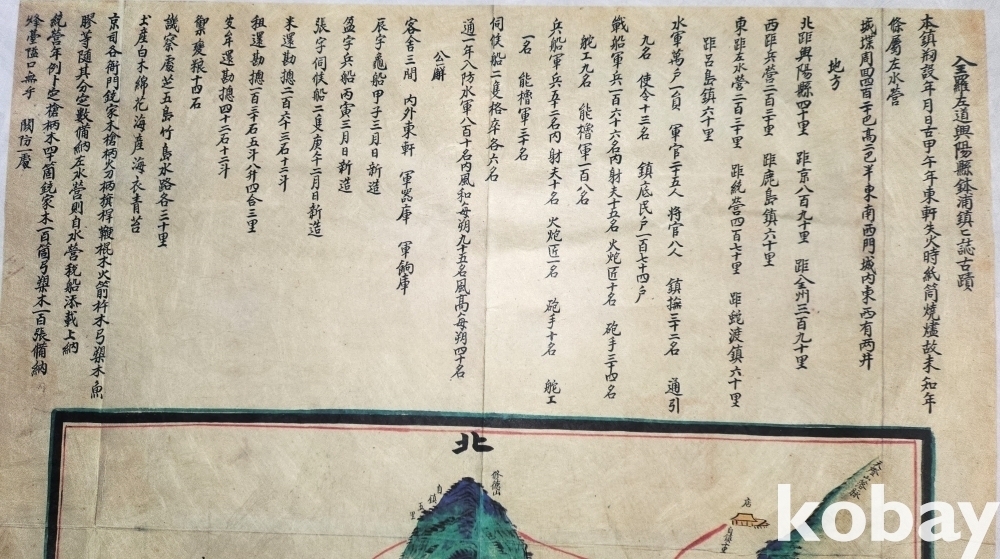 全羅左道興陽縣鉢浦鎮邑誌古蹟
本鎮剏設年月日古甲午年東軒失火時紙筒燒燼故未知年
條屬左水營
城堞周回四百十巴高二巴半東南西門城內東西有兩井
地方
北距興陽縣四十里 距京八百九十里 距全州三百九十里
西距兵營二百三十里 距鹿島鎮六十里
東距左水營二百三十里 距統營四百七十里 距蛇渡鎮六十里
距呂島鎮六十里
水軍萬戶一員 軍官二十五人 將官八人 鎮撫三十二名 通引
九名 使令十三名 鎮底民戶一百七十四戶
戰船軍兵一百六十六名內射夫十五名 火炮匠十名 砲手二十四名
舵工九名 能櫓軍一百八名
兵船軍兵五十二名內射夫十名 火炮匠一名 砲手十名 舵工
一名 能櫓軍三十名
伺候船二隻格卒各六名
通一年八防水軍八百十名內風和每朔九十五名風高每朔四十名
公廨
客舍三間 內外東軒 軍器庫 軍餉庫
辰字龜船甲子三月日新造
盈字兵船丙寅三月日新造
張字伺候船二隻庚午二月日新造
米還勘摠二百六十三石十三斗
租還勘摠一百三十石五斗八升四合三里
支牟還勘摠四十二石十二斗
禦變粮十四石
譏察處芝五島竹島水路各三十里
土產白木綿花海產海衣青苔
京司各衙門銃家木槍柄火分柄擯桿鞭棍木火箭杵木弓槊木魚
膠等隨其分定數備納左水營則自水營税船添載上納
統營年例卜定槍柄木四十箇銃家木一百箇弓槊木一百張備納
烽臺隘口無乎 關防一處
北
店